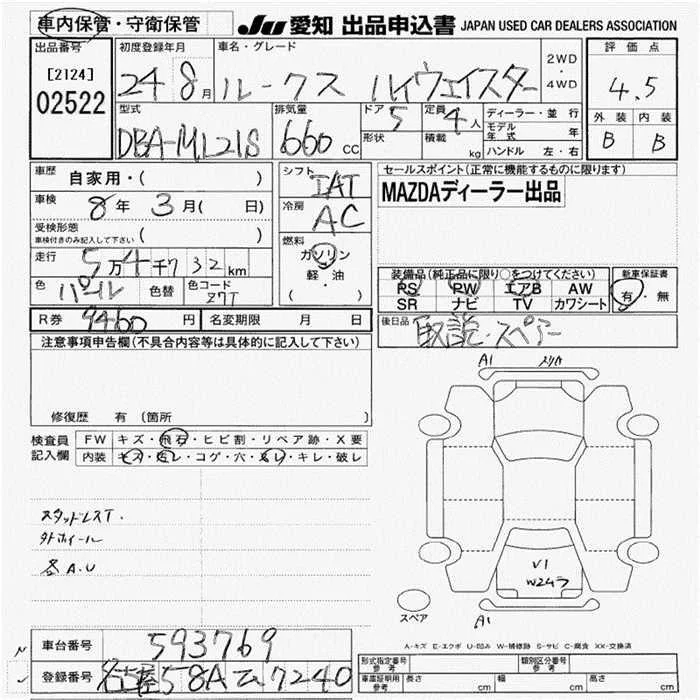 車内保管・守衛保管 JU 愛知 出品申込書 JAPAN USED CAR DEALERS ASSOCIATION
出品番号 初度登録年月 車名・グレード 評価点
[2124] 24 8月 ルークス ハイウェイスター 2WD・4WD 4.5
02522
型式 排気量 ドア 定員 ディーラー・並行 外装 内装
DBA-ML21S 660 CC 5 4人 モデル年式 年 B B
形状 積載 kg ハンドル 左・右
車歴 自家用・( ) シフト IAT セールスポイント(正常に機能するものに限ります)
車検 8年 3月( 日) 冷房 AC MAZDAディーラー出品
受検形態 ( )
車検付きのみ記入して下さい
燃料
走行 5万4千7 32km ガソリン
軽・油
( )
装備品(純正品に限り○をつけてください) 新車保証書
色 パール 色替 色コード Z7T PS PW エアB AW 有・無
SR ナビ TV カワシート
R券 9460円 名変期限 月 日 後日品 取説・スペアー
注意事項申告欄(不具合内容等は具体的に記入して下さい)
修復歴 有 (箇所
検査員記入欄 FW キズ・飛石・ヒビ割・リペア跡・X要
内装 キズ・汚レ・コゲ・穴・スレ・キレ・破レ
スタッドレスT.
外ホイール
各A.U
A1
V1
W2ムラ
A1
スペア
A-キズ E-エクボ U-凹み W-補修跡 S-サビ C-腐食 XX-交換済
車台番号 593769
登録番号 名古屋 58A ム 7240
形式指定番号 参考 類別区分番号 参考
車庫証明用 参考 長さ cm 幅 cm 高さ cm